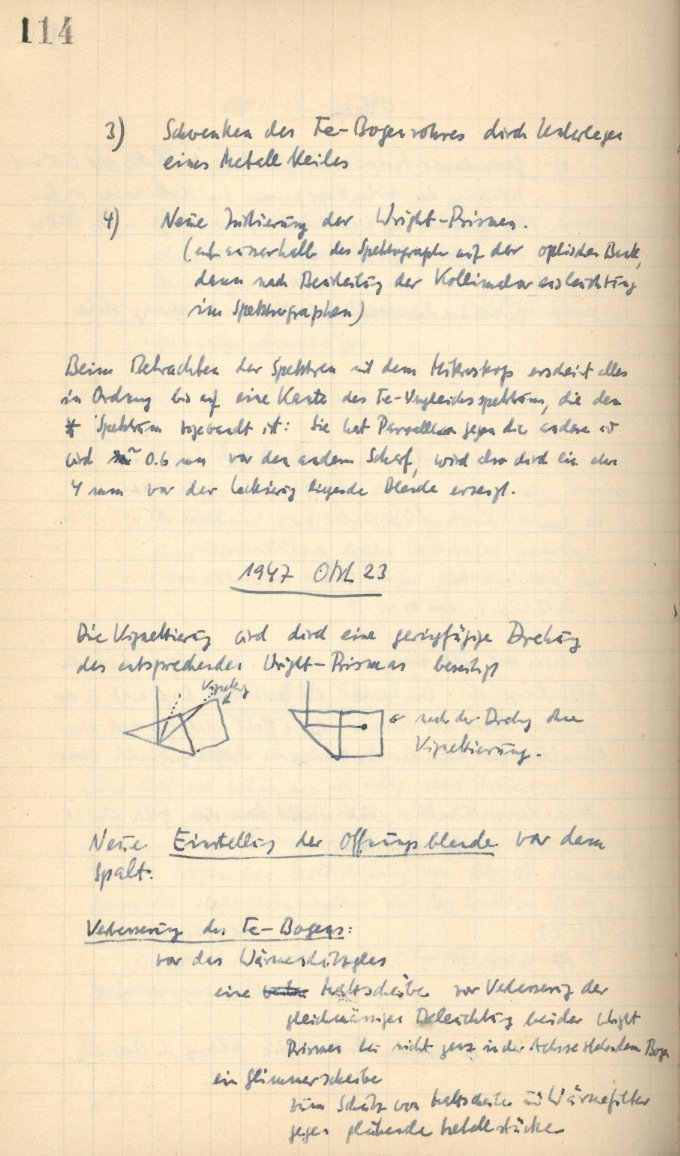 114
3) Schwenken des Fe-Bogenrohres durch Unterlegen
eines Metallkeiles
4) Neue Justierung der Wright-Prismen.
(erst ausserhalb des Spektrographen auf der optischen Bank,
dann nach Beurteilung der Kollimatorausleuchtung
im Spektrographen)
Beim Betrachten der Spektren mit dem Mikroskop erscheint alles
in Ordnung bis auf eine Kante des Fe-Vergleichsspektrums, die dem
* Spektrum zugewandt ist: Sie hat Parallaxe gegen die andere u
wird 0.6 mm vor den andern scharf, wird also durch ein
4 mm vor der liegende Blende erzeugt.
1947 Okt 23
Die Vignettierung wird durch eine geringfügige Drehung
des entsprechenden Wright-Prismas beseitigt
Vignettierung
nach der Drehung ohne
Vignettierung.
Neue Einstellung der Öffnungsblende vor dem
Spalt.
Verbesserung des Fe-Bogens:
vor das Wärmeschutzglas
eine Mattscheibe zur Verbesserung der
gleichmässigen Beleuchtung beider Wright
Prismen bei nicht ganz in der Achse stehendem Bogen
ein Glimmerscheibe
zum Schutz von Mattscheibe und Wärmefilter
gegen glühende Metallstücke